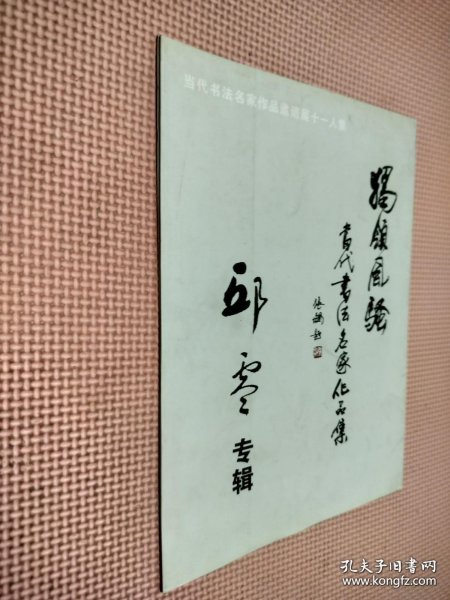 当代书法名家作品邀请展十一人集
独领风骚
当代书法名家作品集
张鹏题
邱零
专辑
孔夫子旧书网
www.kongfz.com